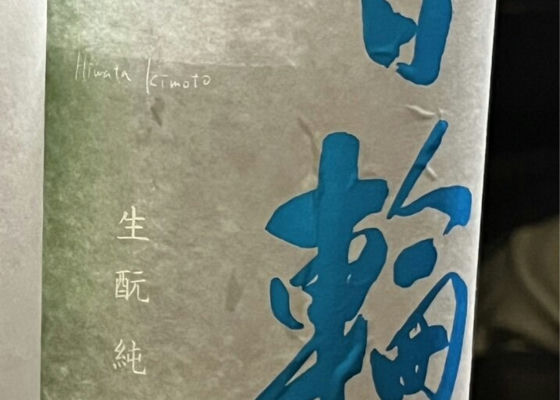 日輪
Hiwata Kimoto
生酛純